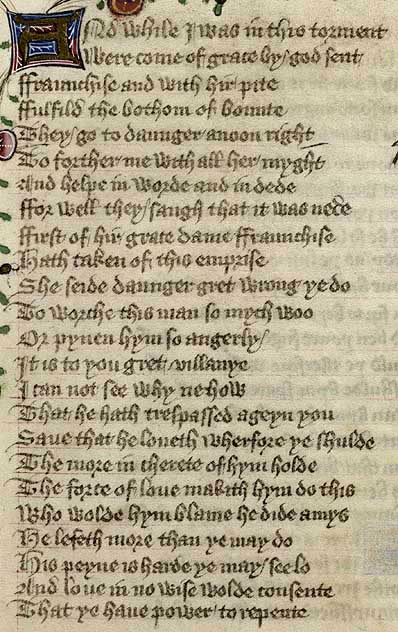 And while I was in this torment
Were come of grace by / god sent
ffraunchise and with hir pite
ffulfild the bothom of bounte
They / go to daunger anoon right
To forther me with all her myght
And helpe in worde and in dede
ffor well they / saugh that it was nede
ffirst of hir grace dame ffraunchise
Hath taken of this emprise
She seide daunger gret wrong ye do
To worche this man so mych woo
Or pynen hym so angerly /
It is to you gret / villanye
I can not see why ne how
That he hath trespassed ageyn you
Saue that he loueth wherfore ye shulde
The more in cherete of hym holde
The force of loue makith hym do this
Who wolde hym blame he dide amys
He leseth more than ye may do
His peyne is harde ye may / see lo
And loue in no wise wolde consente
That ye haue power / to repente